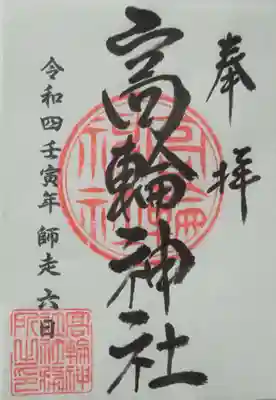 奉拝
高輪神社
令和四壬寅年 師走 六日
高輪神
社社務
所之印